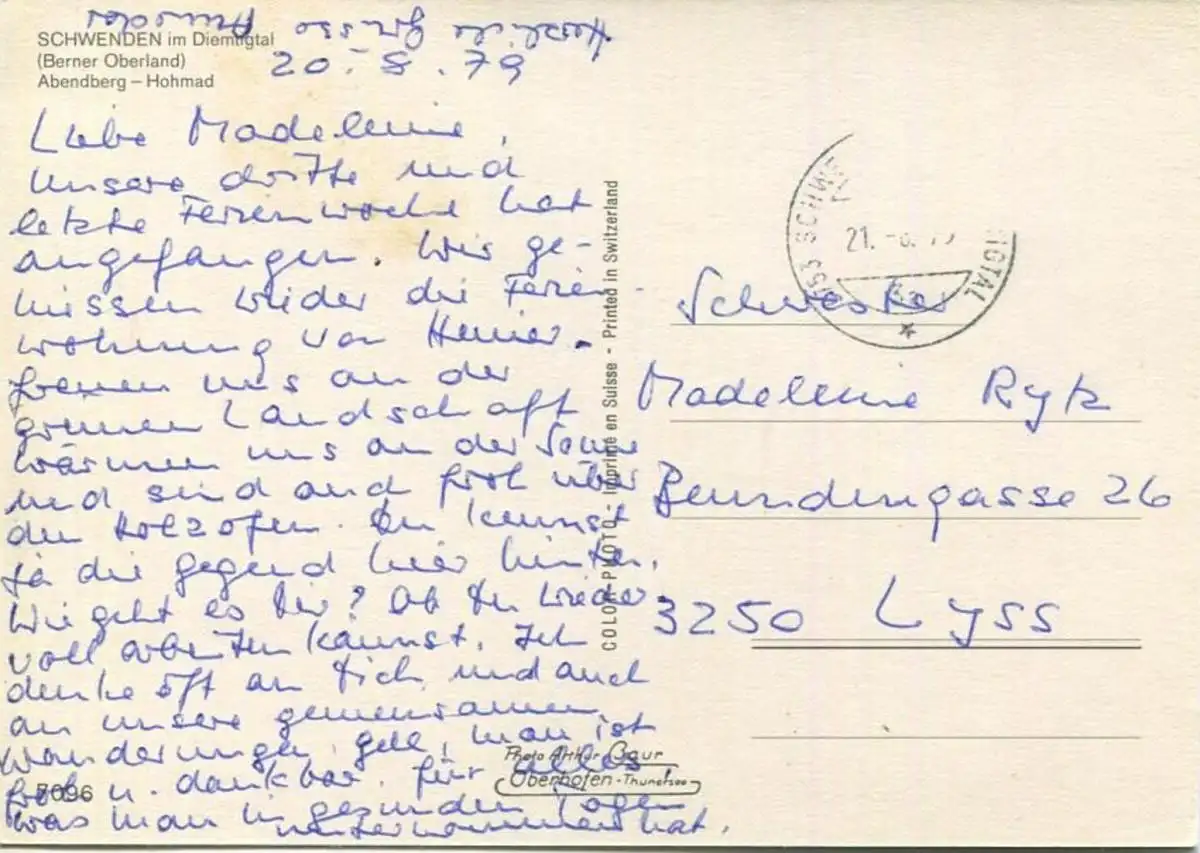 SCHWENDEN im Diemtigtal
(Berner Oberland)
Abendberg – Hohmad
20. 8. 79
Liebe Madeleine,
Unsere dritte und
letzte Ferienwoche hat
angefangen. Wir ge-
niessen wieder die Ferien-
wohnung von Heiner.
freuen uns an der
grünen Landschaft
wärmen uns an der Sonne
und sind auch froh über
den Holzofen. Du kennst
ja die Gegend hier hinten.
Wie geht es Dir? Ob Du wieder
voll arbeiten kannst. Ich
denke oft an Dich und auch
an unsere gemeinsamen
Wanderungen. Gell, man ist
froh u. dankbar für alles
was man in gesunden Tagen
unternommen hat.
Herzliche Grüsse
COLOR-PHOTO - Imprimé en Suisse - Printed in Switzerland
SCHWE
IGTAL
21. -8. 79
Schwester
Madeleine Rytz
Beundengasse 26
3250 Lyss
Photo Arthur Baur
Oberhofen - Thunersee
7096